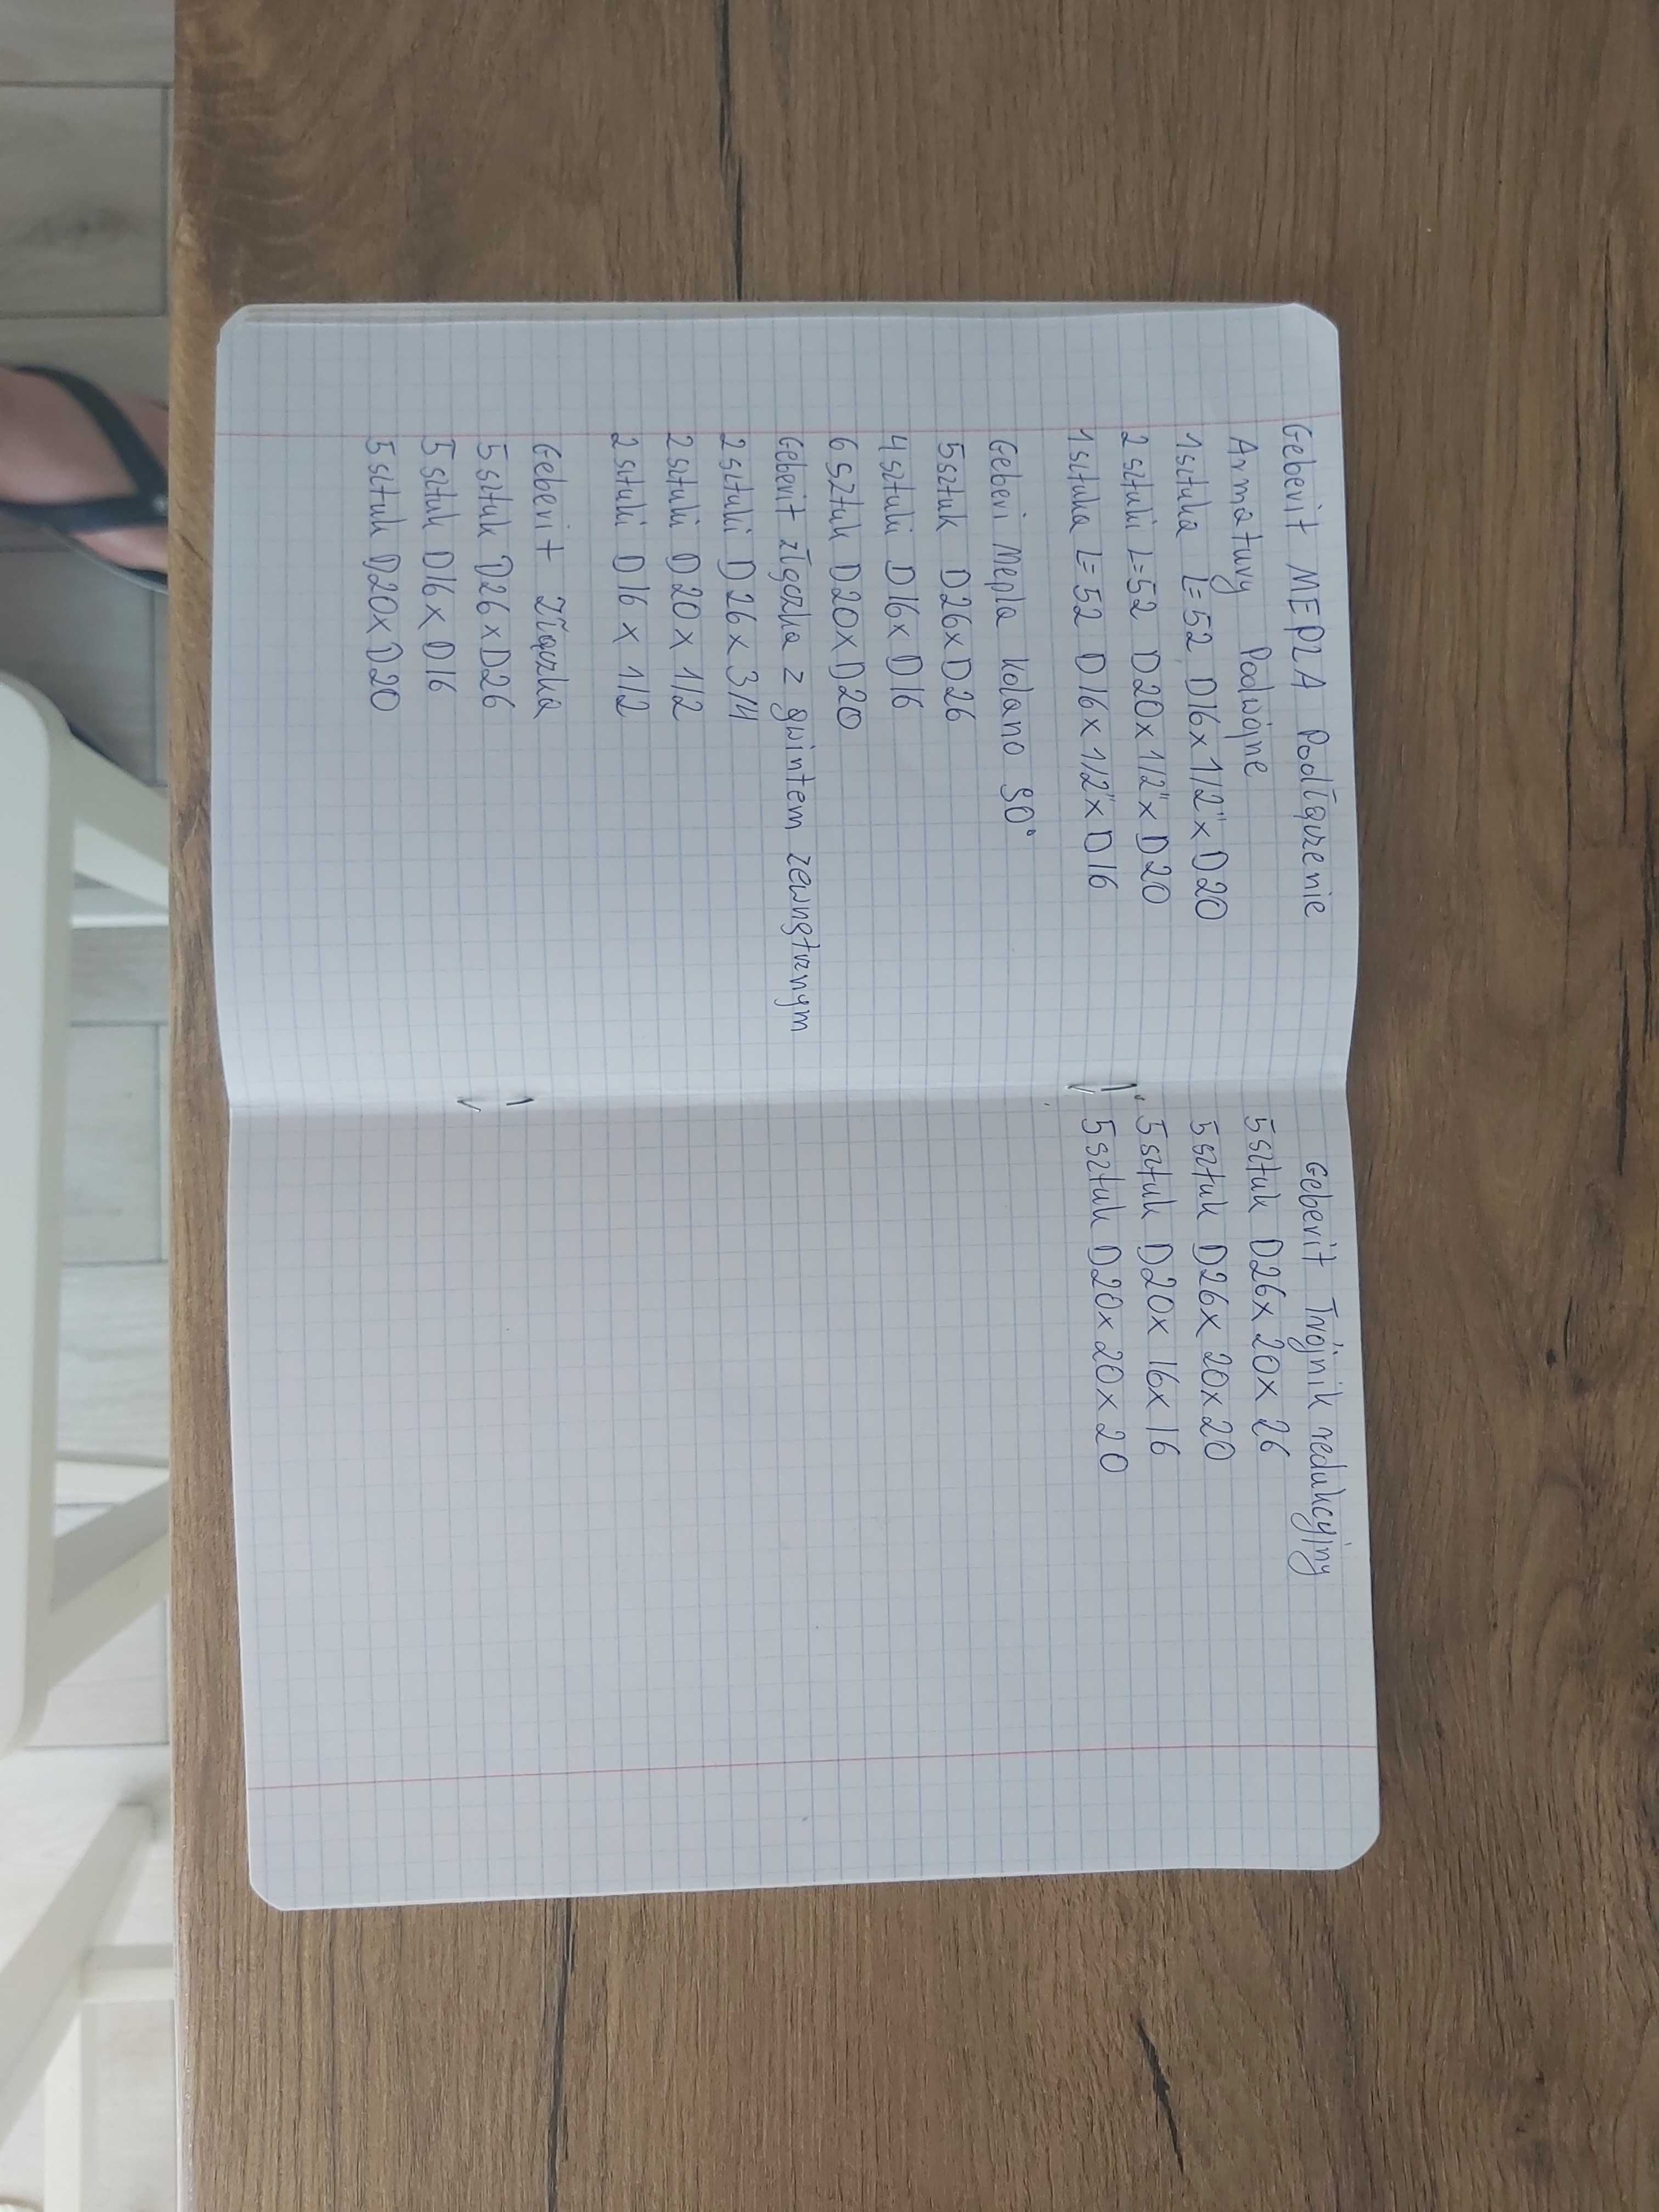 Geberit MEPLA Podłączenie
Armatury Podwójne
1 sztuka L=52 D16x1/2"xD20
2 sztuki L=52 D20x1/2"xD20
1 sztuka L=52 D16x1/2"xD16
Geberi Mepla kolano 90°
5 sztuk D26xD26
4 sztuki D16xD16
6 sztuk D20xD20
Geberit złączka z gwintem zewnętrznym
2 sztuki D26x3/4
2 sztuki D20x1/2
2 sztuki D16x1/2
Geberit złączka
5 sztuk D26xD26
5 sztuk D16xD16
5 sztuk D20xD20
Geberit Trójnik redukcyjny
5 sztuk D26x20x26
5 sztuk D26x20x20
5 sztuk D20x16x16
5 sztuk D20x20x20